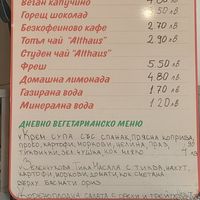 Веган капучино 4.80
Горещ шоколад 50 лв
Безкофеиново кафе 2.70 лв
Топъл чай "Althaus" 2.90 лв
Студен чай "Althaus"
Фреш 5.50 лв
Домашна лимонада 4.80 лв
Газирана вода 1.70 лв
Минерална вода 1.20 лв
ДНЕВНО ВЕГЕТАРИАНСКО МЕНЮ
Крем супа със спанак, прясна коприва,
картофи, моркови, целина, праз,
тиквички, зел. чушка, кок. мляко
Зеленчукова Тика Масала с тиква, нахут,
картофи, моркови, домати, кок. сметана
върху басмати ориз